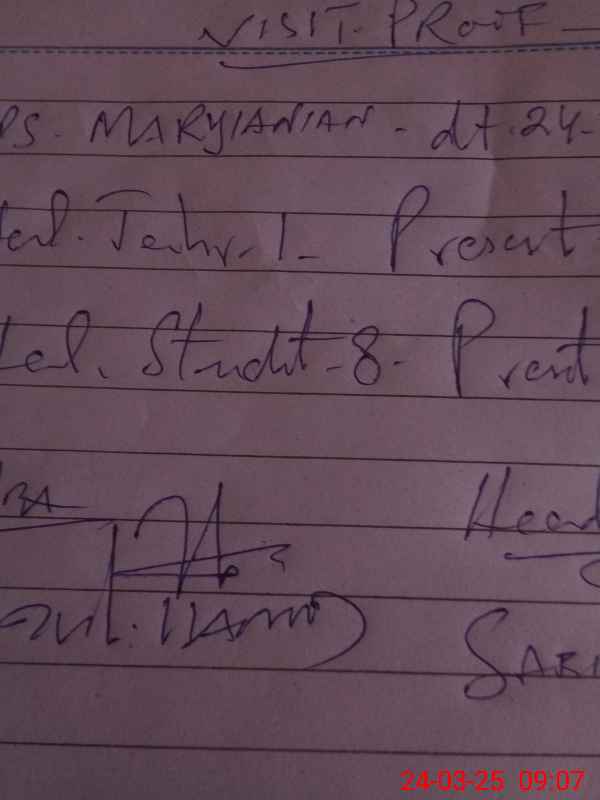 VISIT. PROOF -
PS. MARYIANIAN - dt. 24-
tal. Teachr. 1 - Present
tal. Studt - 8 - Present
BA Head
SARI
24-03-25 09:07